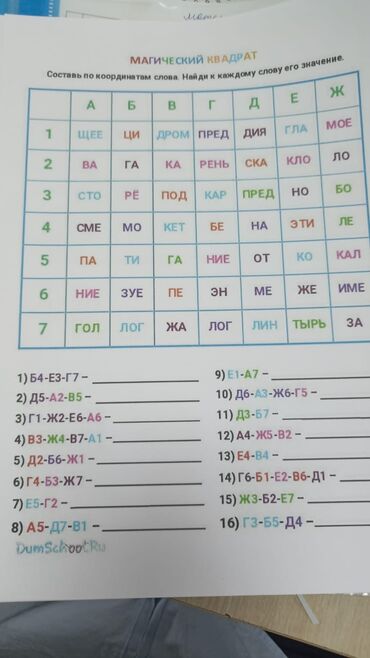 МАГИЧЕСКИЙ КВАДРАТ
Составь по координатам слова. Найди к каждому слову его значение.
А Б В Г Д Е Ж
1 ЩЕЕ ЦИ ДРОМ ПРЕД ДИЯ ГЛА МОЕ
2 ВА ГА КА РЕНЬ СКА КЛО ЛО
3 СТО РЁ ПОД КАР ПРЕД НО БО
4 СМЕ МО КЕТ БЕ НА ЭТИ ЛЕ
5 ПА ТИ ГА НИЕ ОТ КО КАЛ
6 НИЕ ЗУЕ ПЕ ЭН МЕ ЖЕ ИМЕ
7 ГОЛ ЛОГ ЖА ЛОГ ЛИН ТЫРЬ ЗА
1) Б4-Е3-Г7 –
2) Д5-А2-В5 –
3) Г1-Ж2-Е6-А6 –
4) В3-Ж4-В7-А1 –
5) Д2-Б6-Ж1 –
6) Г4-Б3-Ж7 –
7) Е5-Г2 –
8) А5-Д7-В1 –
9) Е1-А7 –
10) Д6-А3-Ж6-Г5 –
11) Д3-Б7 –
12) А4-Ж5-В2 –
13) Е4-В4 –
14) Г6-Б1-Е2-В6-Д1 –
15) Ж3-Б2-Е7 –
16) Г3-Б5-Д4 –
DumSchool.Ru